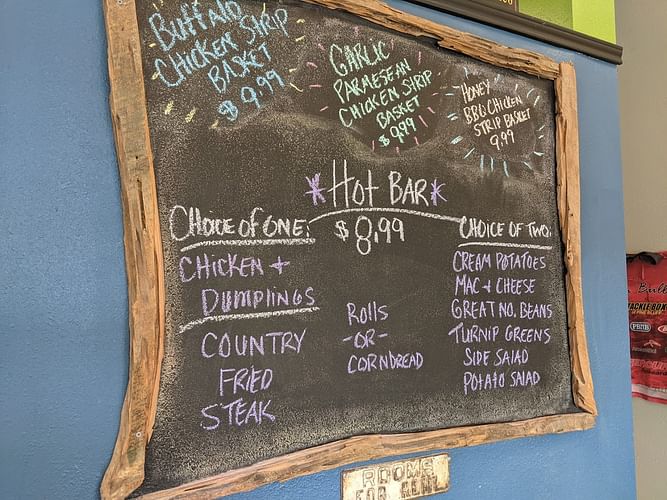 BUFFALO
CHICKEN STRIP
BASKET
$9.99
GARLIC
PARMESEAN
CHICKEN STRIP
BASKET
$9.99
HONEY
BBQ CHICKEN
STRIP BASKET
9.99
*HOT BAR*
$8.99
CHOICE OF ONE:
CHICKEN +
DUMPLINGS
COUNTRY
FRIED
STEAK
ROLLS
-OR-
CORNBREAD
CHOICE OF TWO:
CREAM POTATOES
MAC + CHEESE
GREAT NO. BEANS
TURNIP GREENS
SIDE SALAD
POTATO SALAD
ROOMS
FOR RENT